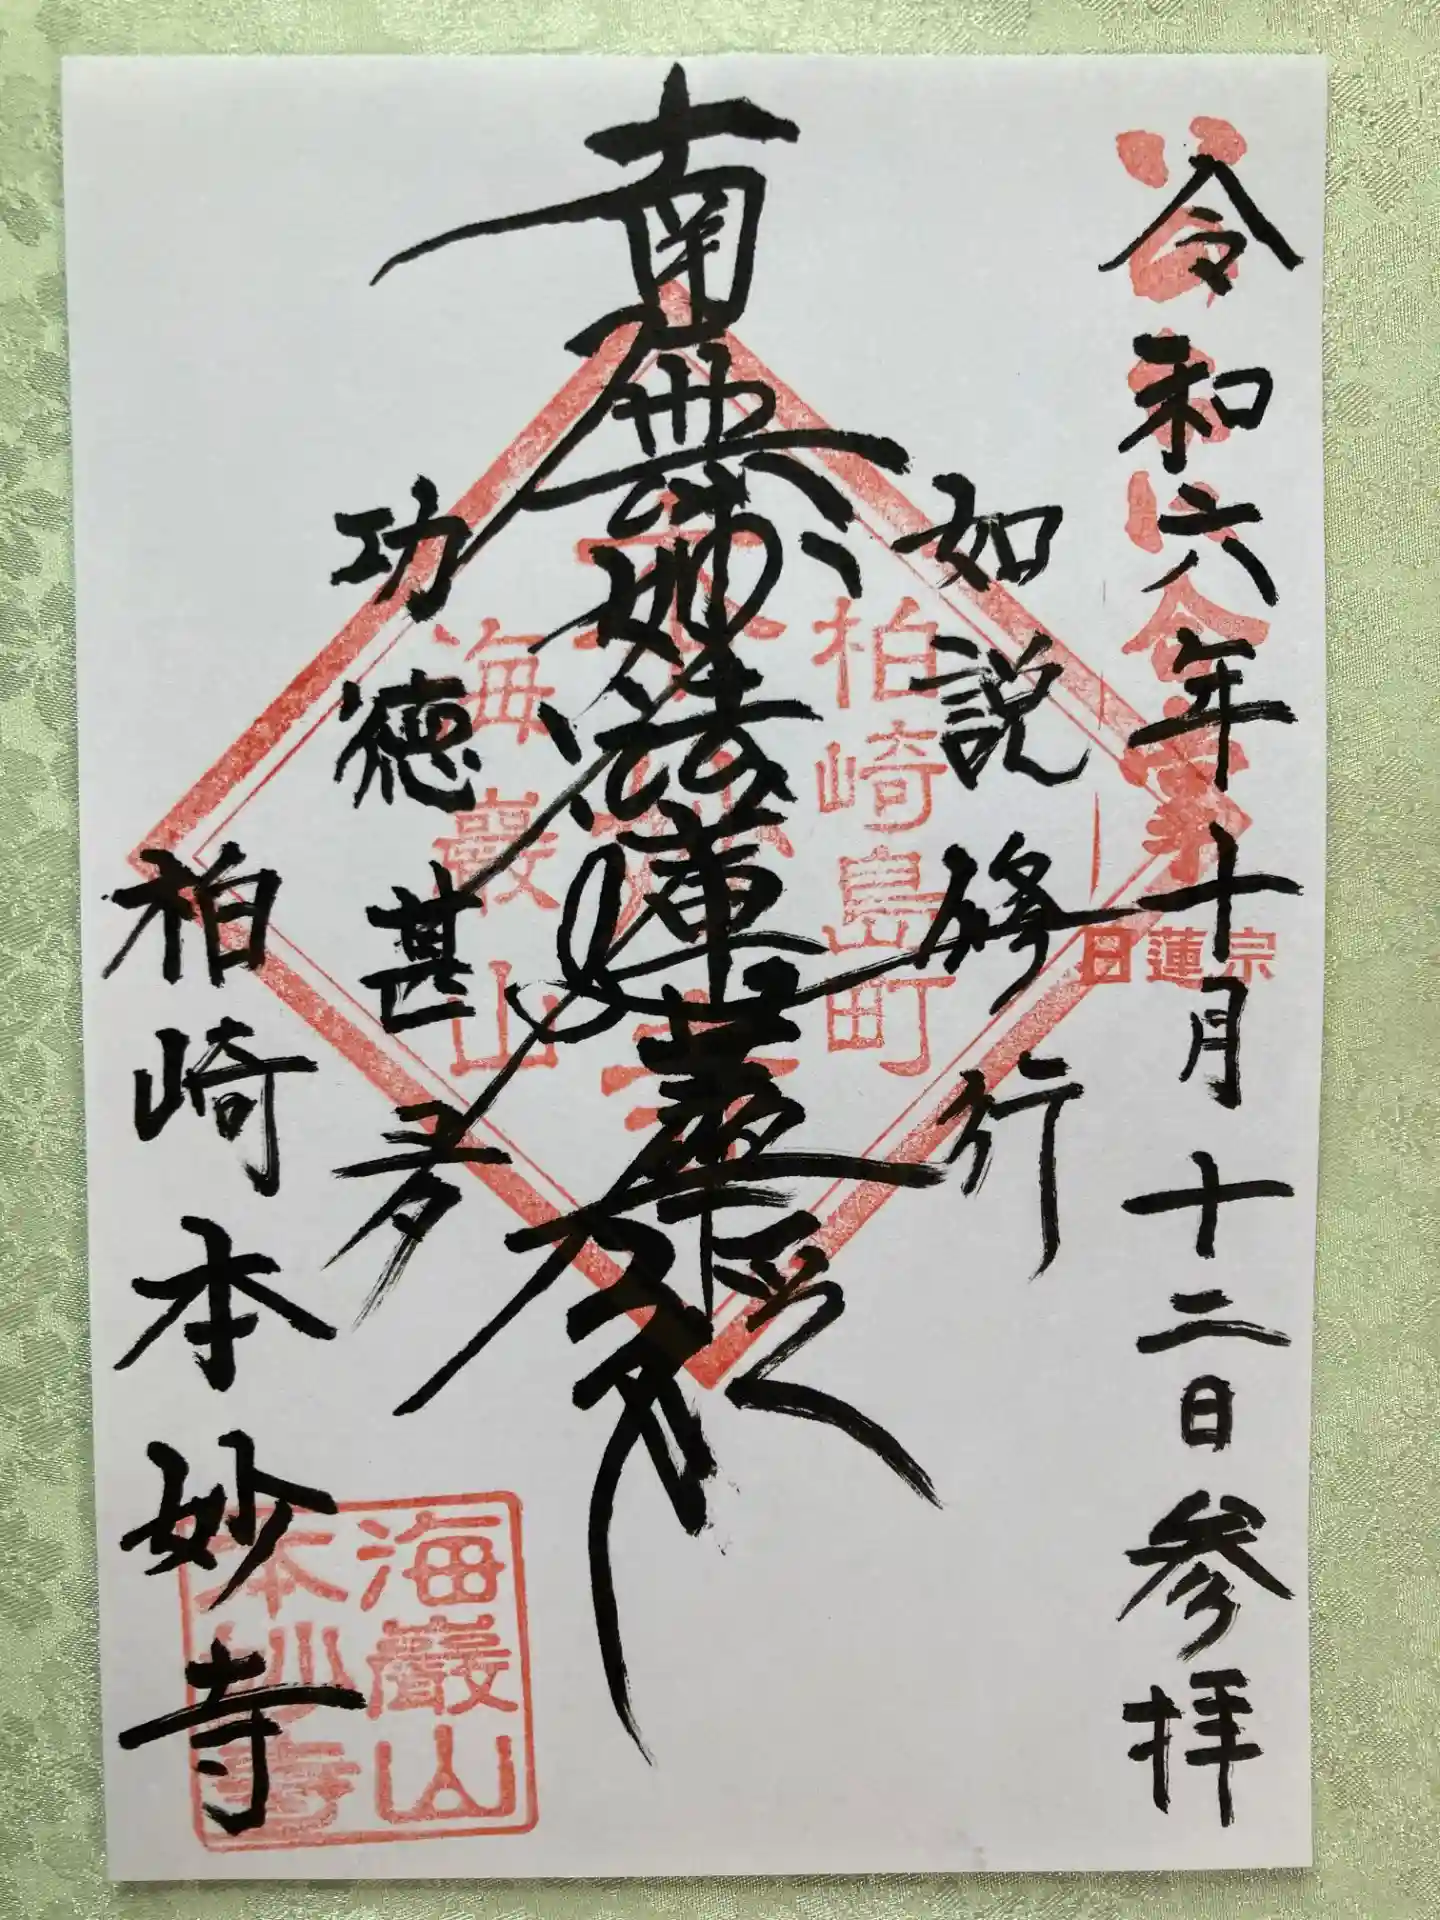 令和六年十月十二日参拝
日蓮宗
如説修行
南無妙法蓮華経
功徳甚多
柏崎本妙寺
柏崎島町
海巖山
海巖山
本妙寺